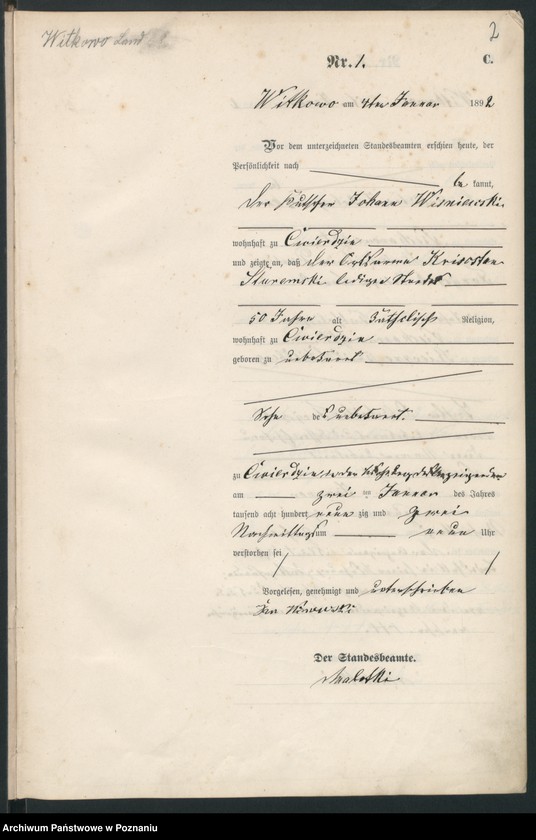 Witkowo Land
2
Nr. 1.
C.
Witkowo am 4ten Januar 1892
Vor dem unterzeichneten Standesbeamten erschien heute, der
Persönlichkeit nach
bekannt,
der Kutscher Johann Wisniewski
wohnhaft zu Cwierdzin
und zeigte an, daß der Ortsarme
ledigen Standes
50 Jahre alt Katholisch Religion,
wohnhaft zu Cwierdzin
geboren zu unbekannt
Sohn des unbekannt.
zu Cwierdzin in der Wohnung des Anzeigenden
am zwei ten Januar des Jahres
tausend acht hundert neun zig und zwei
Nachmittags um neun Uhr
verstorben sei
Vorgelesen, genehmigt und unterschrieben
Jan
Der Standesbeamte.
Archiwum Państwowe w Poznaniu